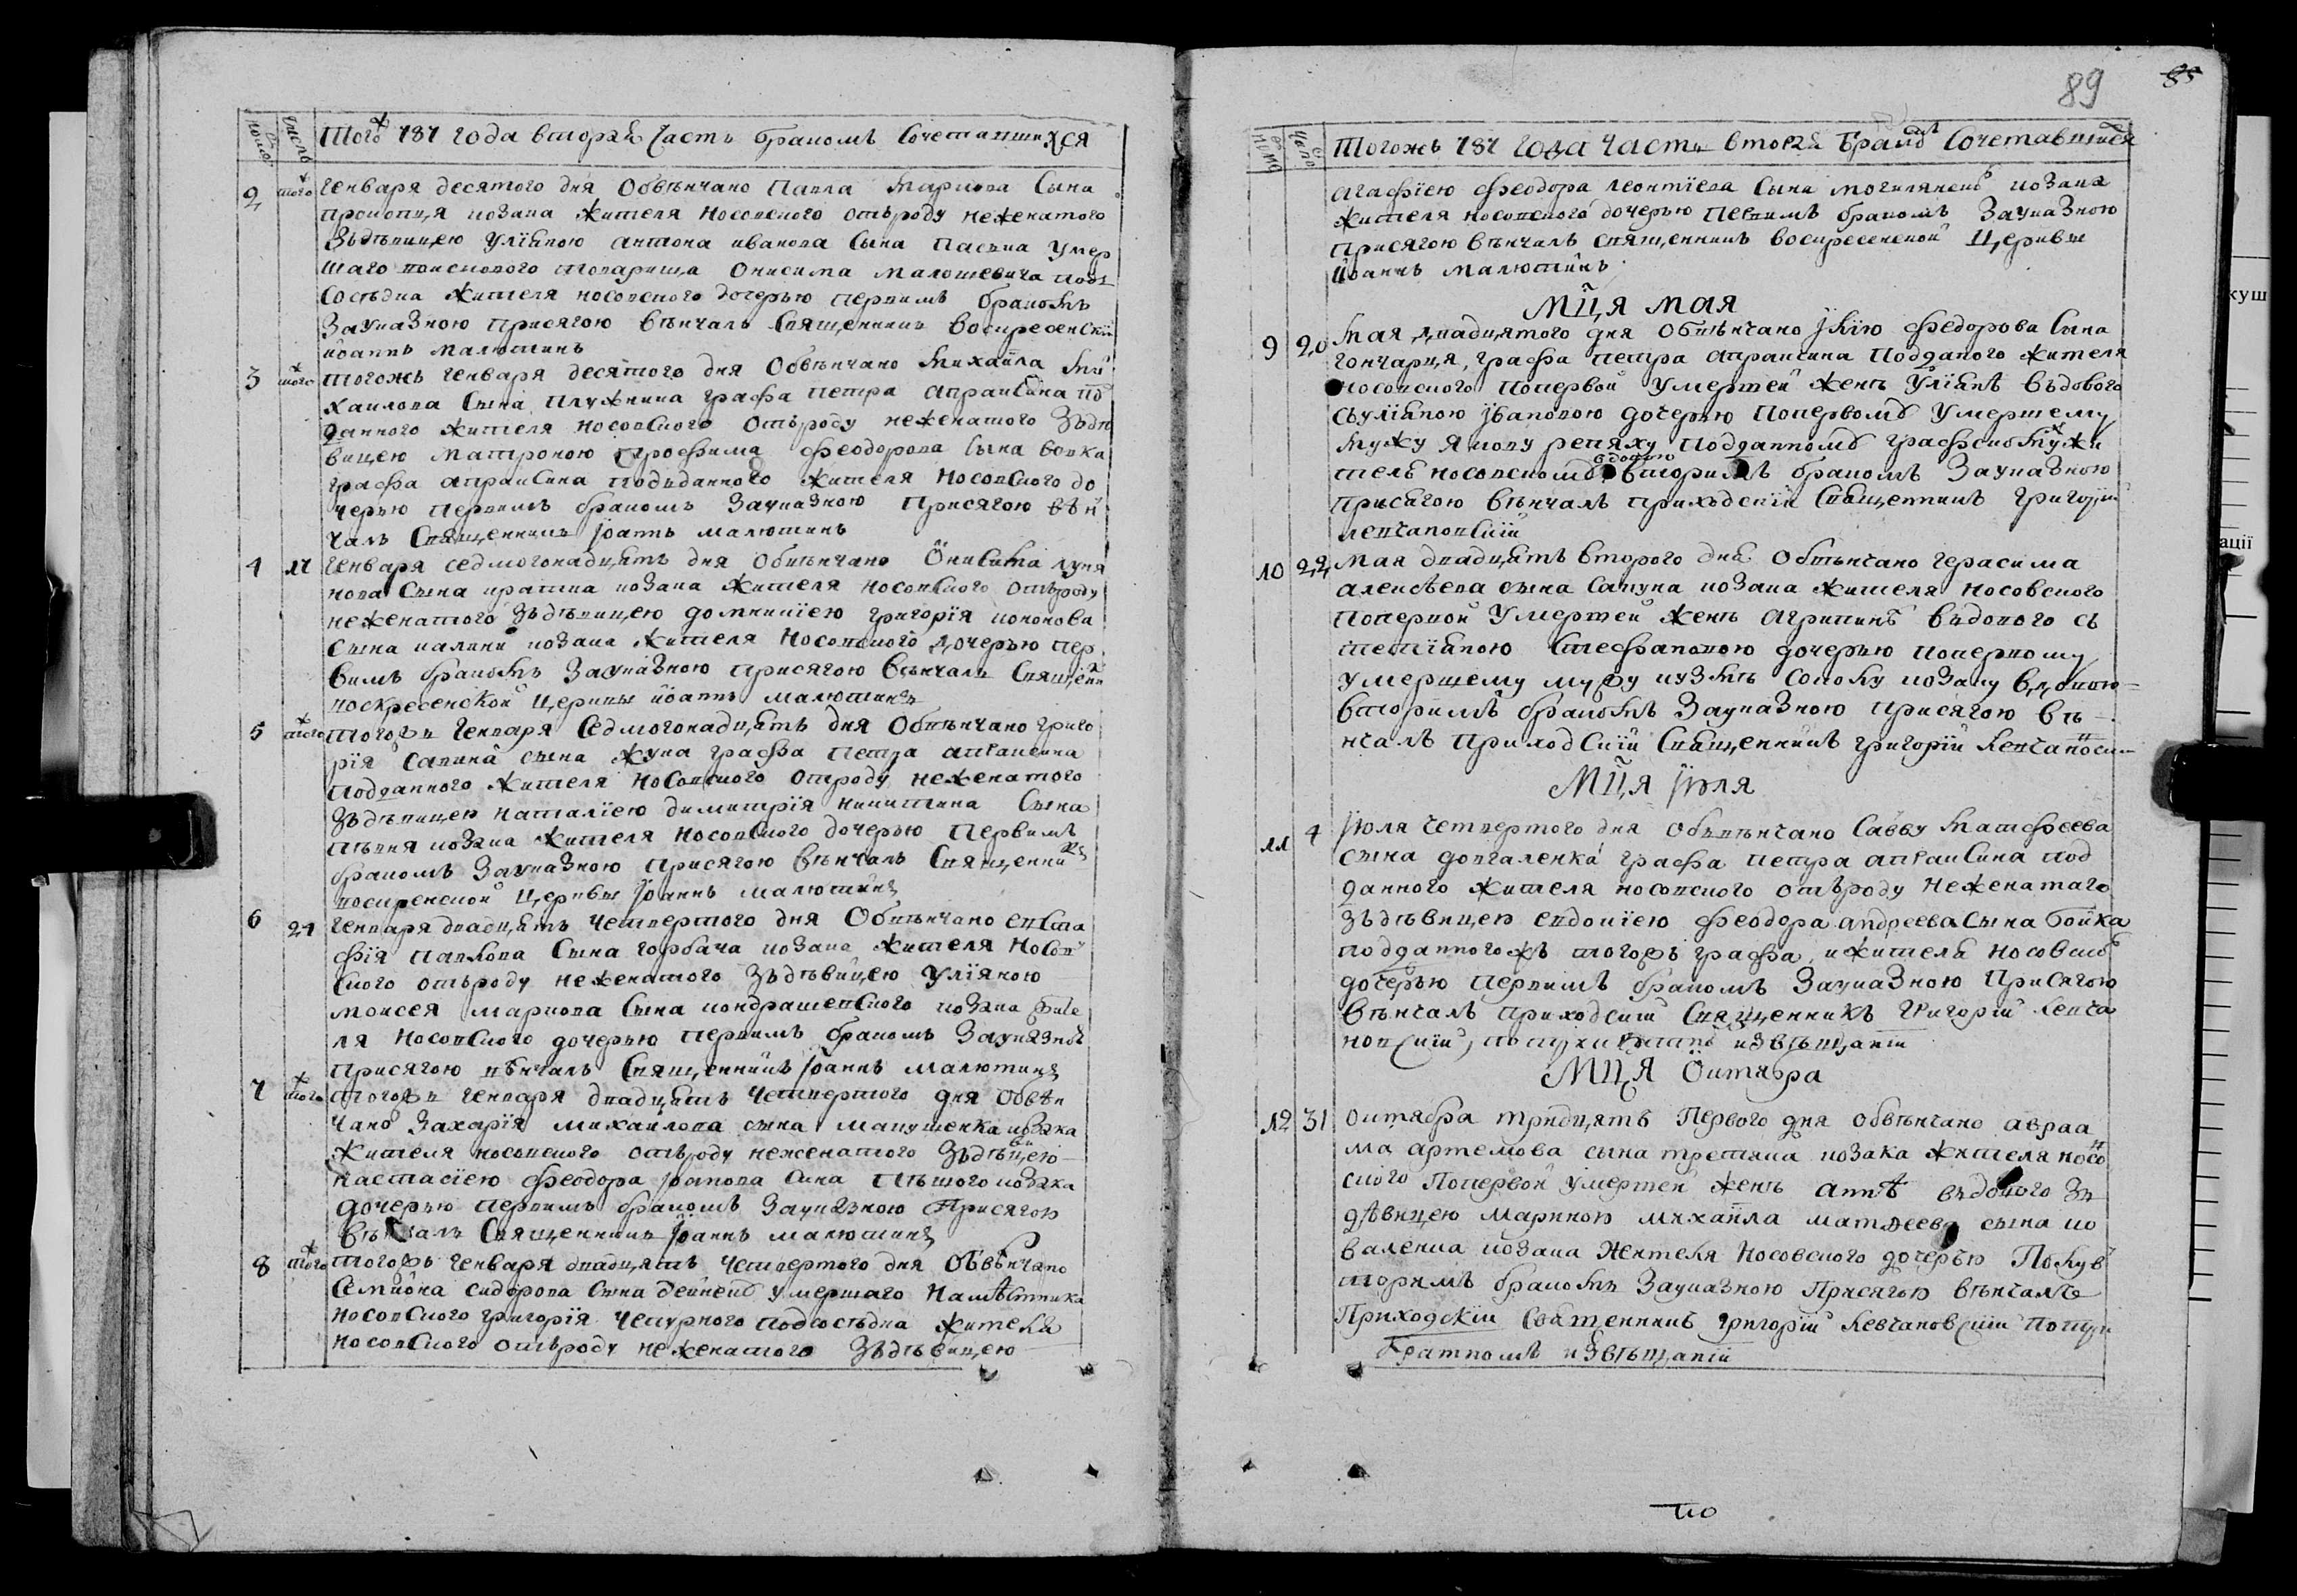 Того ж 787 года вторая часть бракомъ сочетавшихся
2 того ж Генваря десятого дня обвѣнчано Павла Маркова сына
Прокопця козака жителя носовского отъроду неженатого
зъдѣвицею Улїяною Антона Иванова сына Пасѣка умер
шаго войскового товарища Онисима Малошевича подъ
сосѣдка жителя носовского дочерью первимъ бракомъ
зауказною присягою вѣнчалъ священникъ воскресенскїи
Иоаннъ Малютинъ
3 того ж Тогожъ Генваря десятого дня обвѣнчано Михаила Ми
хаилова сына Плужника графа Петра Апраксина под
данного жителя носовского отъроду неженатого зъдѣ
вицею Матроною Трофима Феодорова сына Вовка
графа Апраксина подъданного жителя носовского до
черью первимъ бракомъ зауказною присягою вѣн
чалъ священникъ Їоаннъ Малютинъ
4 17 Генваря седмогонадцять дня обвѣнчано Онисима Луки
нова сына козака жителя носовского отъроду
неженатого зъдѣвицею Домникїею Григорїя Кононова
сына козака жителя носовского дочерью пер
вимъ бракомъ зауказною присягою вѣнчалъ священникъ
воскресенской церкви Иоаннъ Малютинъ
5 того ж Тогожъ Генваря седмогонадцять дня обвѣнчано Григо
рїя Савина сына Жука графа Петра Апраксина
подданного жителя носовского отроду неженатого
зъдѣвицею Наталїею Димитрїя Никитина сына
козака жителя носовского дочерью первимъ
бракомъ зауказною присягою вѣнчалъ священникъ
воскресенской церкви Їоаннъ Малютинъ
6 24 Генваря двадцять четвертого дня обвѣнчано Евста
фїя Павлова сына Горбача козака жителя носов
ского отъроду неженатого зъдѣвицею Улїяною
Моисея Маркова сына Кондрашевского козака жите
ля носовского дочерью первимъ бракомъ зауказною
присягою вѣнчалъ священникъ Їоаннъ Малютинъ
7 того ж Тогожъ Генваря двадцять четвертого дня обвѣн
чано Захарїя Михайлова сына Макушенка козака
жителя носовского отъроду неженатого зъдѣвицею
Настасїею Феодора сына козака
дочерью первимъ бракомъ зауказною присягою
вѣнчалъ священникъ Їоаннъ Малютинъ
8 того ж Тогожъ Генваря двадцять четвертого дня обвѣнчано
Семиона Сидорова сына Дейнеко умершаго намѣстника
носовского Григорїя Чепурного подсосѣдка жителя
носовского отъроду неженатого зъдѣвицею
89 85
Тогожъ 787 года часть вторая бракомъ сочетавшихся
Агафїею Феодора Леонтїева сына козака
жителя носовского дочерью первимъ бракомъ зауказною
присягою вѣнчалъ священникъ воскресенской церкви
Иоаннъ Малютинъ
Мця Мая
9 20 Мая двадцятого дня обвѣнчано Федорова сына
Гончарця, графа Петра Апраксина подданого жителя
носовского попервой умершей женѣ Улїянѣ въдового
съ Улїяною Ївановою дочерью попервому умершему
мужу Якову Репяху подданному графскому жи
телю носовскому вдовою вторимъ бракомъ зауказною
присягою вѣнчалъ приходскїй священникъ Григорїй
Левчановскїй
10 22 Мая двадцять второго дня обвѣнчано Герасима
Алексѣева сына Сапуна козака жителя носовского
попервой умершей женѣ Агрипинѣ въдового съ
Тетїяною Стефановою дочерью попервому
умершему мужу Кузмѣ козаку вдовою
вторимъ бракомъ зауказною присягою вѣ
нчалъ приходскїй священникъ Григорїй Левчановски
Мця Їюля
11 4 Їюля четвертого дня обвѣнчано Савву Матфеева
сына Довгаленка графа Петра Апраксина под
данного жителя носовского отъроду неженатаго
зъдѣвицею Евдокїею Феодора Андреева сына Бойка
подданногожъ тогожъ графа, и жителя носовско
дочерью первимъ бракомъ зауказною присягою
вѣнчалъ приходскїй священникъ Григорїй Левча
новскїй, по изъвѣщанїи
Мця Октября
12 31 Октября тридцять первого дня обвѣнчано Авраа
ма Артемова сына Третяка козака жителя носов
ского попервой умершей женѣ Аннѣ въдового зъ
дѣвицею Мариною Михаила Матвеева сына Ко
валенка козака жителя носовского дочерью
вторимъ бракомъ зауказною присягою вѣнчалъ
приходскїй священникъ Григорїй Левчановскїй по три
кратномъ изъвѣщанїи
по